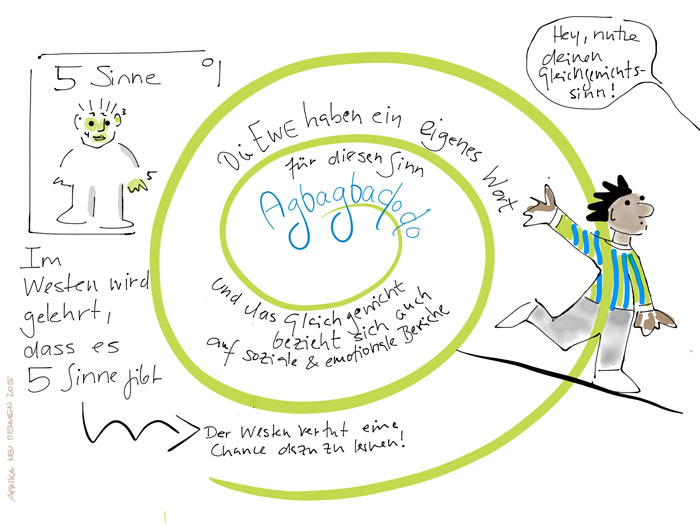 5 Sinne
5
Im
Westen wird
gelehrt,
dass es
5 Sinne gibt
Die EWE haben ein eigenes Wort
für diesen Sinn
Agbagbaɖoɖo
und das Gleichgewicht
bezieht sich auch
auf soziale & emotionale Bereiche
Der Westen vertut eine
Chance dazu zu lernen!
Hey, nutze
deinen
Gleichgewichts-
sinn!
AFRIKA NEU DENKEN 2015